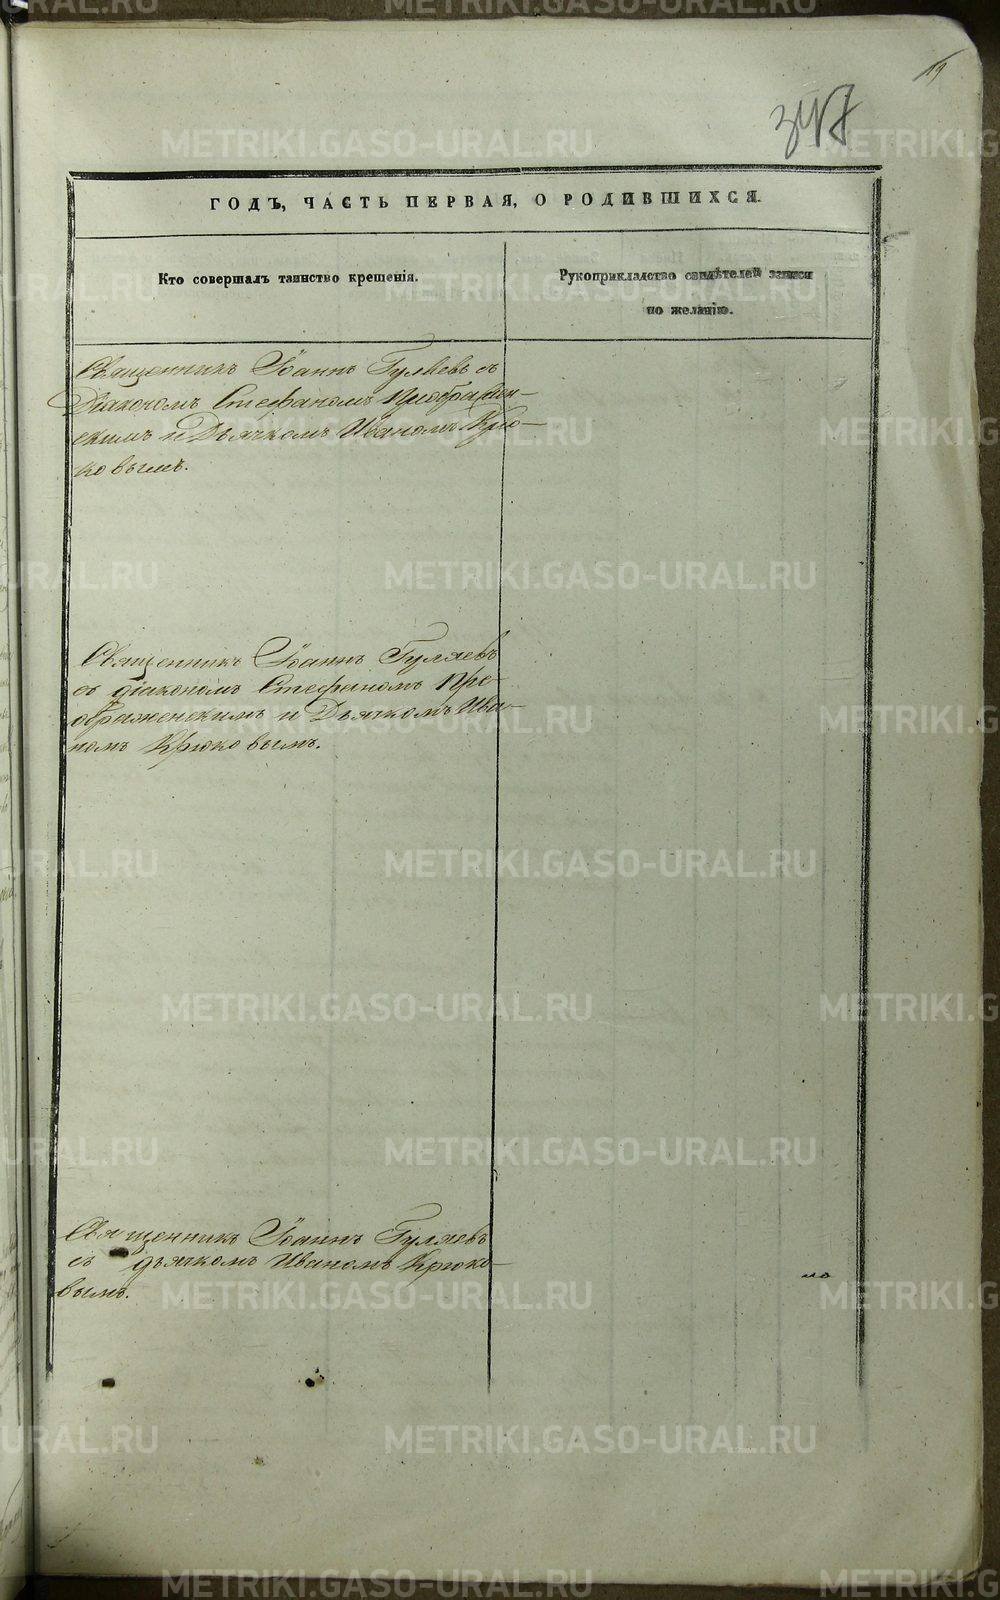 19
347
ГОДЪ, ЧАСТЬ ПЕРВАЯ, О РОДИВШИХСЯ.
Кто совершалъ таинство крещенія.
Рукоприкладство свидѣтелей записи
по желанію.
Священникъ Іоаннъ Гуляевъ съ
Діакономъ Стефаномъ Преображен-
скимъ и Дьячкомъ Иваномъ Крю-
ковымъ.
Священникъ Іоаннъ Гуляевъ
съ діакономъ Стефаномъ Пре-
ображенскимъ и Дьячкомъ Ива-
номъ Крюковымъ.
Священникъ Іоаннъ Гуляевъ
съ дьячкомъ Иваномъ Крюко-
вымъ.
METRIKI.GASO-URAL.RU